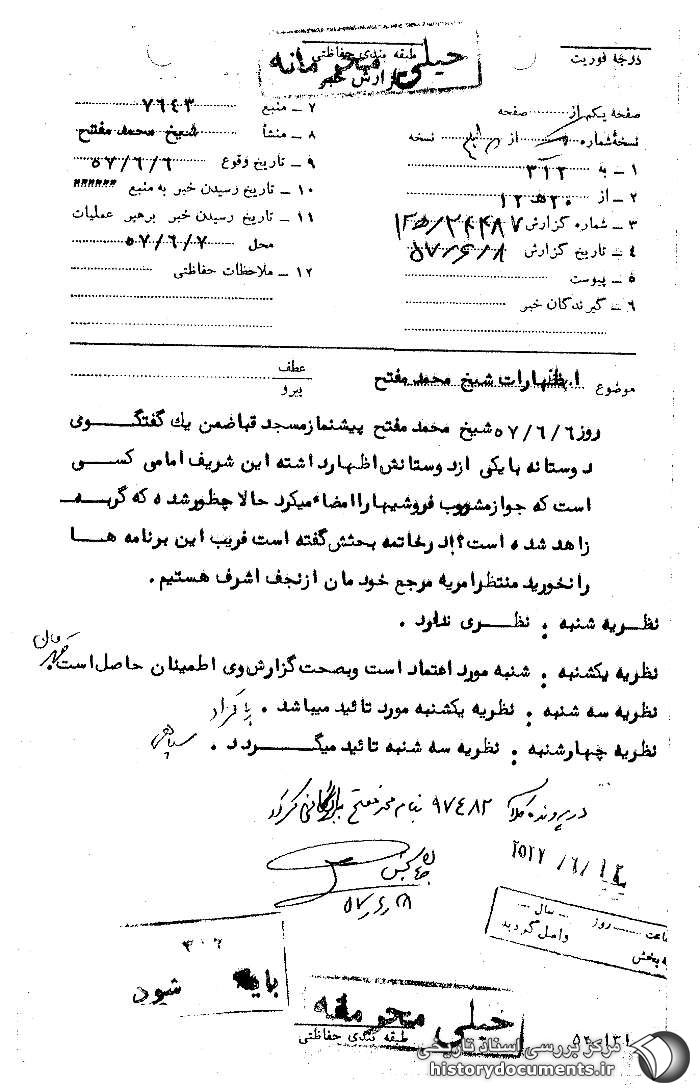 خیلی محرمانه
طبقه بندی حفاظتی
گزارش خبر
درجه فوریت
صفحه یکم از صفحه
نسخه شماره از نسخه
۱ ـ به ۳۱۲
۲ ـ از ۲۰ هـ ۱۲
۳ ـ شماره گزارش
۴ ـ تاریخ گزارش ۵۷/۶/۸
۵ ـ پیوست
۶ ـ گیرندگان خبر
۷ ـ منبع ۷۶۴۳
۸ ـ منشأ شیخ محمد مفتح
۹ ـ تاریخ وقوع ۵۷/۶/۶
۱۰ ـ تاریخ رسیدن خبر به منبع ######
۱۱ ـ تاریخ رسیدن خبر برهبر عملیات
محل ۵۷/۶/۷
۱۲ ـ ملاحظات حفاظتی
موضوع اظهارات شیخ محمد مفتح
عطف
پیرو
روز ۵۷/۶/۶ شیخ محمد مفتح پیشنماز مسجد قبا ضمن یك گفتگوی
دوستانه با یکی از دوستانش اظهار داشته این شریف امامی کسی
است که جواز مشروب فروشیها را امضاء میکرد حالا چطور شده که گربه
زاهد شده است؟ در خاتمه بحثش گفته است فریب این برنامه ها
را نخورید منتظر امریه مرجع خودمان از نجف اشرف هستیم.
نظریه شنبه : نظری ندارد .
نظریه یکشنبه : شنبه مورد اعتماد است و بصحت گزارش وی اطمینان حاصل است
نظریه سه شنبه : نظریه یکشنبه مورد تائید میباشد . پاکزاد
نظریه چهارشنبه : نظریه سه شنبه تائید میگردد . سپاهی
در پرونده کلاسه ۹۷۴۸۲ بنام محمد مفتح بایگانی گردد
۵۷/۶/۱۸
ساعت روز سال
به بخش واصل گردید
۳۰۲
شود
خیلی محرمانه
طبقه بندی حفاظتی
مرکز بررسی اسناد تاریخی
historydocuments.ir